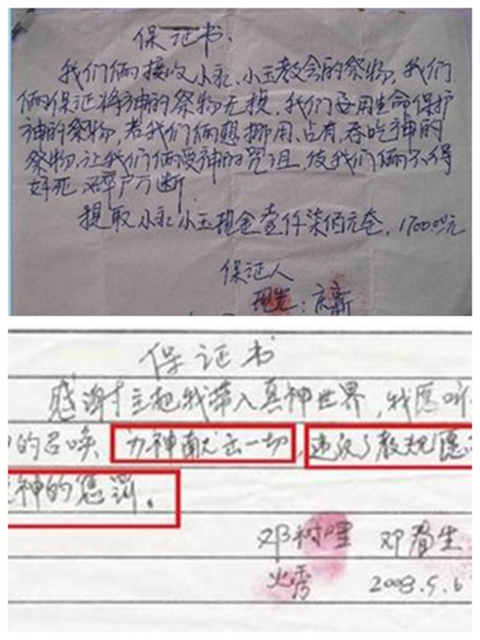 保证书.
我们俩接收小永、小玉教会的祭物,我们
俩保证将神的祭物无损,我们要用生命保护
神的祭物,若我们俩想挪用、占有、吞吃神的
祭物,让我们俩受神的咒诅,使我们俩不得
好死
提取小永小玉现金壹仟柒佰元在,1700.00元
保证人
保证书
感谢主把我带入真神世界,我愿听
的召唤 为神献出一切,违反了教规愿
神的惩罚。
邓树 邓
火秀 2003.5.6